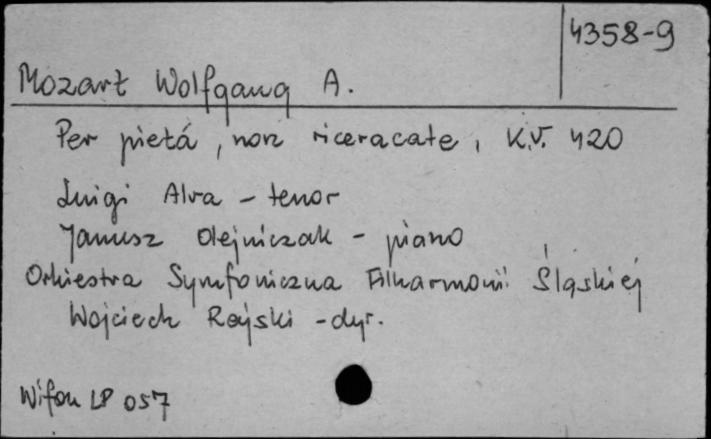 4358-9
Mozart Wolfgang A.
Per pietá, non riceracate, K.V. 420
Luigi Alva - tenor
Janusz Olejniczak - piano
Orkiestra Symfoniczna Filharmonii Śląskiej
Wojciech Rajski - dyr.
Wifon LP 057